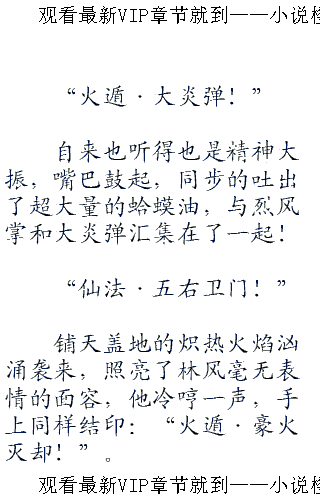 观看最新VIP章节就到——小说
“火遁·大炎弹！”
自来也听得也是精神大
振，嘴巴鼓起，同步的吐出
了超大量的蛤蟆油，与烈风
掌和大炎弹汇集在了一起！
“仙法·五右卫门！”
铺天盖地的炽热火焰汹
涌袭来，照亮了林风毫无表
情的面容，他冷哼一声，手
上同样结印：“火遁·豪火
灭却！”。
观看最新VIP章节就到——小说